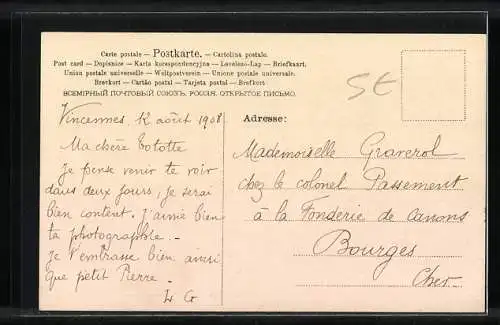 Carte postale — Postkarte. — Cartolina postale.
Post card — Dopisnice — Karta korespondencyjna — Levelező-Lap — Briefkaart.
Union postale universelle — Weltpostverein — Unione postale universale.
Brevkort — Cartão postal — Tarjeta postal — Brefkort
ВСЕМІРНЫЙ ПОЧТОВЫЙ СОЮЗЪ. РОССІЯ. ОТКРЫТОЕ ПИСЬМО.
SE
Vincennes, 12 août 1908
Ma chère Tototte
je pense venir te voir
dans deux jours, je serai
bien content. J'aime bien
ta photographie. -
je t'embrasse bien ainsi
que petit Pierre. -
LG
Adresse:
Mademoiselle Graverol
chez le colonel Passement
à la Fonderie de canons
Bourges
Cher.